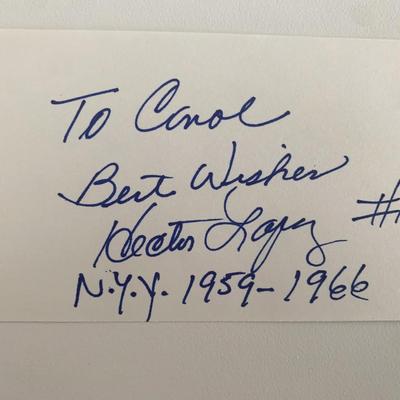 To Carol
Best Wishes
Hector Lopez #
N.Y.Y. 1959-1966